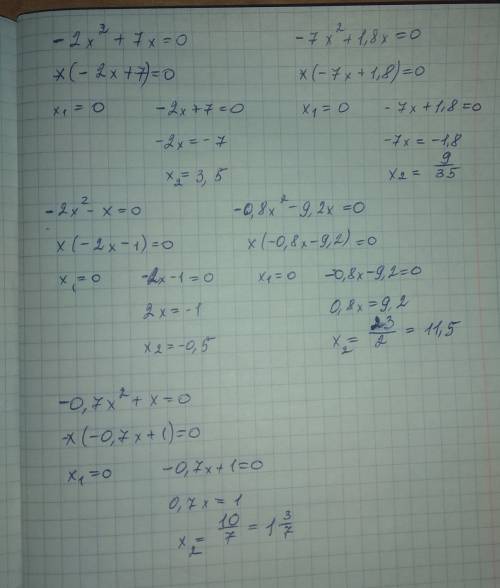 -2x² + 7x = 0
x(-2x+7)=0
x₁ = 0    -2x+7=0
-2x = -7
x₂ = 3,5
-7x²+1,8x=0
x(-7x+1,8)=0
x₁ = 0    -7x+1,8=0
-7x = -1,8
x₂ = 9/35
-2x² - x = 0
x(-2x-1)=0
x₁=0    -2x-1=0
2x = -1
x₂ = -0,5
-0,8x²-9,2x=0
x(-0,8x-9,2)=0
x₁=0    -0,8x-9,2=0
0,8x=9,2
x₂ = 23/2 = 11,5
-0,7x² + x = 0
x(-0,7x+1)=0
x₁=0    -0,7x+1=0
0,7x = 1
x₂ = 10/7 = 1 3/7